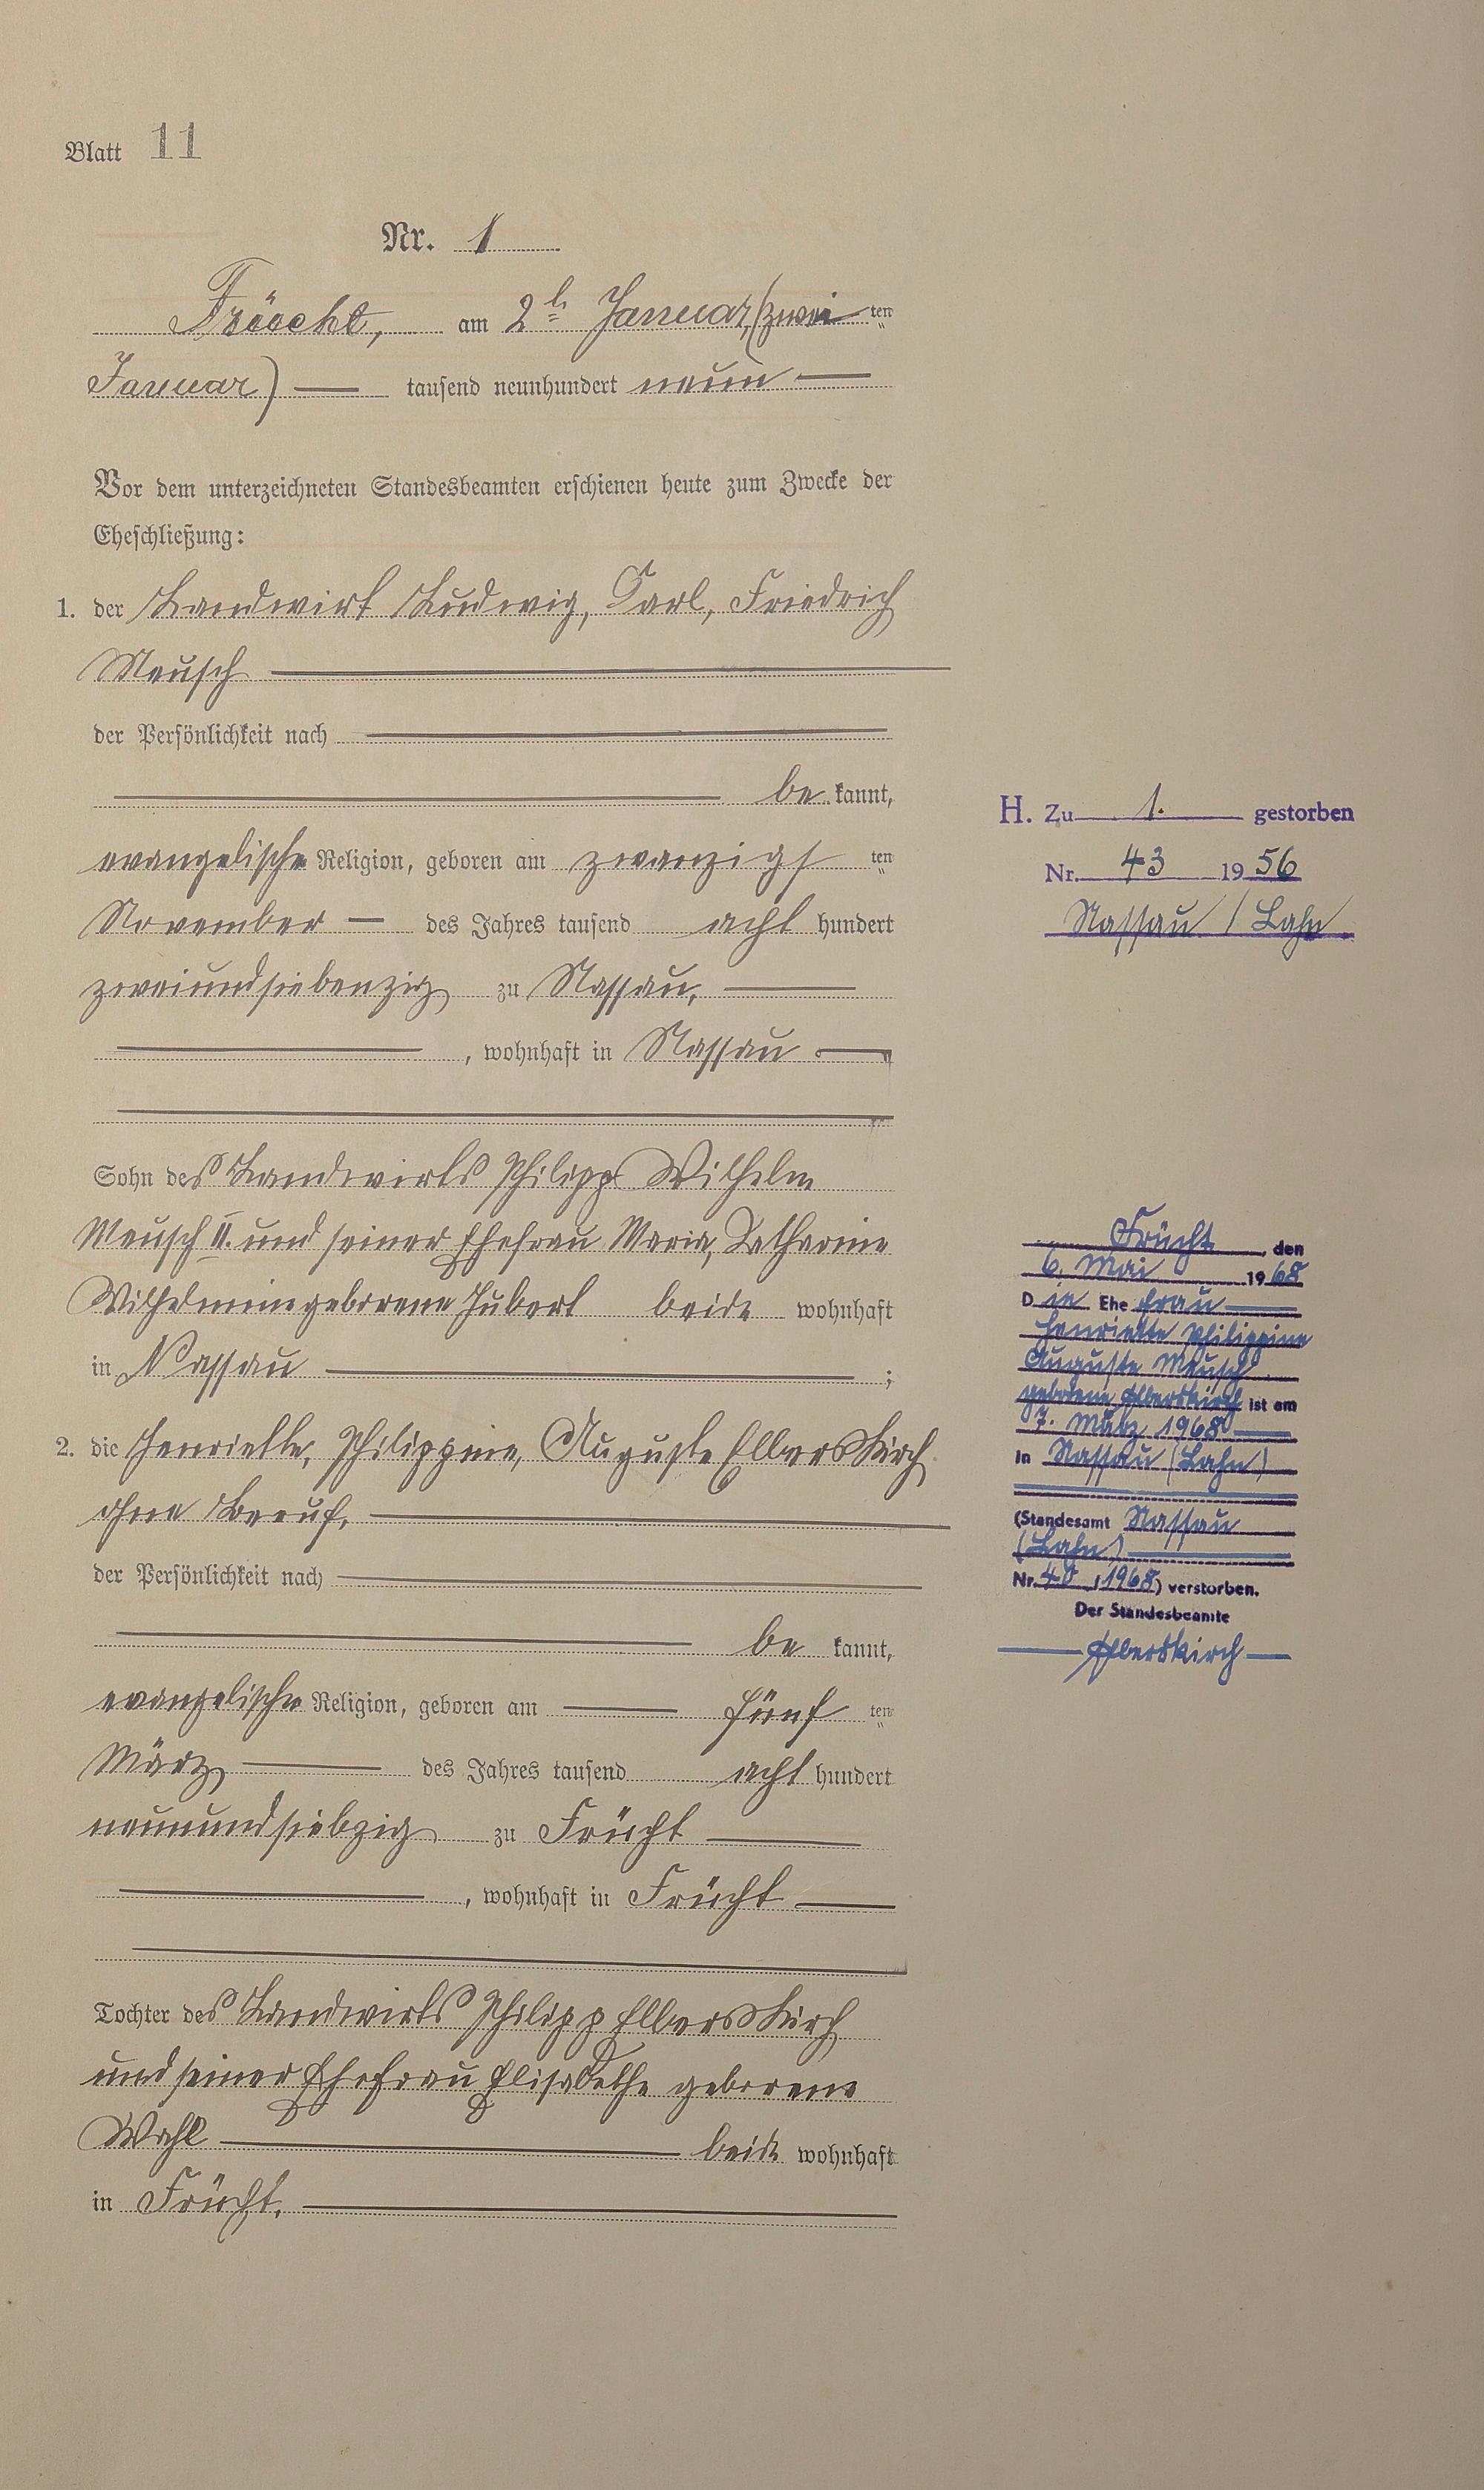 Blatt 11
Nr. 1
Früecht, am 2t Januar, (zwei ten
Januar) — tausend neunhundert neun —
Vor dem unterzeichneten Standesbeamten erschienen heute zum Zwecke der
Eheschließung:
1. der Landwirt Ludwig, Carl, Friedrich
Meusch
der Persönlichkeit nach
be kannt,
evangelische Religion, geboren am zwanzigst ten
November — des Jahres tausend acht hundert
zweiundsiebenzig zu Nassau,
, wohnhaft in Nassau
Sohn des Landwirts Philipp Wilhelm
Meusch II. und seiner Ehefrau Maria, Catharine
Wilhelmine geborene Hubert beide wohnhaft
in Nassau ;
2. die Henriette, Philippine, Auguste Elberskirch
ohne Beruf,
der Persönlichkeit nach
be kannt,
evangelische Religion, geboren am — fünf ten
März, — des Jahres tausend acht hundert
neunundsiebzig zu Frücht
, wohnhaft in Frücht
Tochter des Landwirts Philipp Elberskirch
und seiner Ehefrau Elisabethe geborene
Wahl beide wohnhaft
in Frücht.
H. Zu 1. gestorben
Nr. 43 1956
Nassau / Lahn
Frücht, den
6. Mai 1968
Die Ehefrau
Henriette Philippine
Auguste Meusch
geborene Elberskirch ist am
7. März 1968
in Nassau (Lahn)
(Standesamt Nassau
(Lahn)
Nr. 40 / 1968) verstorben.
Der Standesbeamte
Elberskirch